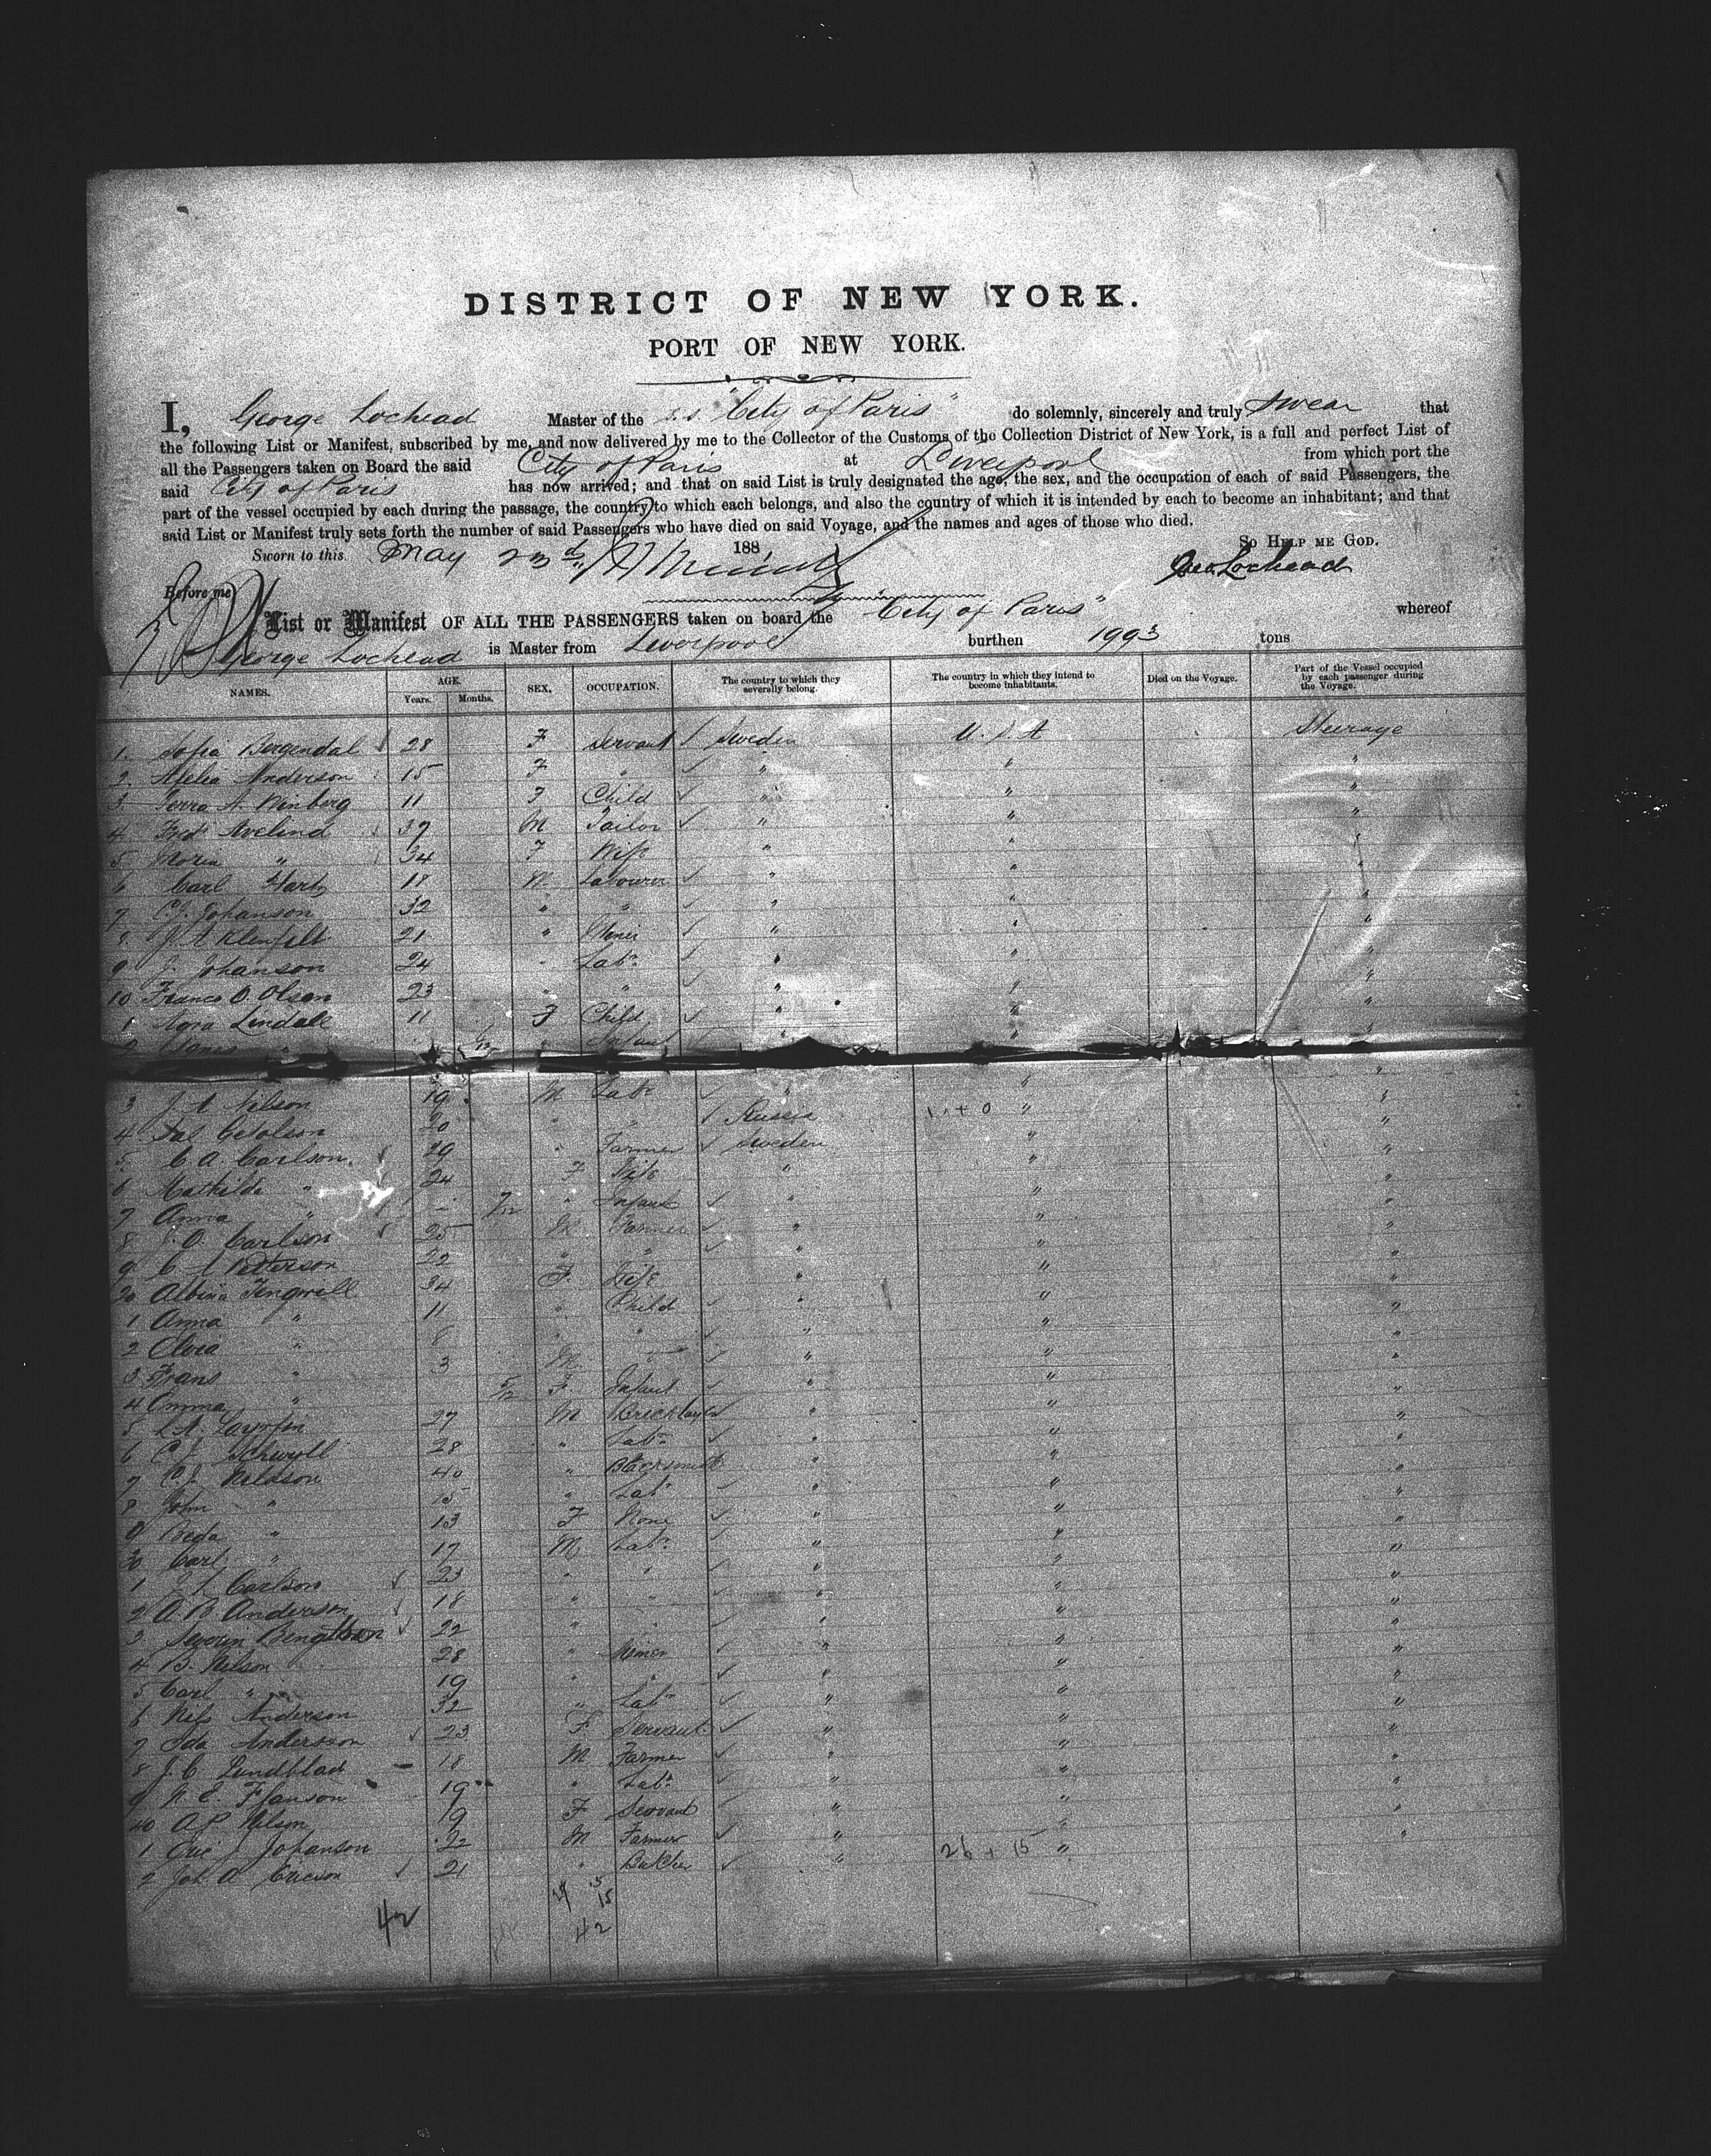 DISTRICT OF NEW YORK.
PORT OF NEW YORK.
I, George Lochead Master of the s.s. "City of Paris" do solemnly, sincerely and truly swear that
the following List or Manifest, subscribed by me, and now delivered by me to the Collector of the Customs of the Collection District of New York, is a full and perfect List of
all the Passengers taken on Board the said City of Paris at Liverpool from which port the
said City of Paris has now arrived; and that on said List is truly designated the age, the sex, and the occupation of each of said Passengers, the
part of the vessel occupied by each during the passage, the country to which each belongs, and also the country of which it is intended by each to become an inhabitant; and that
said List or Manifest truly sets forth the number of said Passengers who have died on said Voyage, and the names and ages of those who died.
Sworn to this May 23d 188 So Help me God.
Before me Geo Lochead
List or Manifest OF ALL THE PASSENGERS taken on board the "City of Paris" whereof
George Lochead is Master from Liverpool burthen 1993 tons
NAMES. AGE. Years. Months. SEX. OCCUPATION. The country to which they severally belong. The country in which they intend to become inhabitants. Died on the Voyage. Part of the Vessel occupied by each passenger during the Voyage.
1. Sofia Bergendal 28 F Servant Sweden U.S.A Steerage
2. Anderson 15 F " " " "
3. A. 11 F Child " " "
4 Fredk Avelind 37 M Tailor " " "
5 Maria " 34 F Wife " " "
6 Carl 18 M Labourer " " "
7 C.J. Johanson 32 " " " " "
8 21 " " " "
9 J. Johanson 24 " Labr " " "
10 O. Olsen 23 " " " " "
1 Lindall 11 F Child " " "
2 " Infant " "
3 J. A Nelson 19 M Labr " " "
4 20 " " Russia " "
5 C A. Carlson 29 " Farmer Sweden " "
6 Mathilda " 24 F Wife " " "
7 Anna " - 7/12 " Infant " " "
8 J. O. Carlson 25 M Farmer " " "
9 C. A Petterson 22 " " " " "
20 Albina Tengwill 34 F Wife " " "
1 Anna " 11 " Child " " "
2 " 8 " " " " "
3 Frans " 3 M " " " "
4 Emma " 5/12 F Infant " " "
5 27 M Bricklayer " " "
6 C J 28 " Labr " " "
7 C J 40 " Blacksmith " " "
8 John " 15 " Labr " " "
9 Beda " 13 F None " " "
30 Carl " 17 M Labr " " "
1 Carlson 23 " " " " "
2 A. B Anderson 18 " " " " "
3 Severin Bengtson 22 " " " " "
4 B. Nilson 28 " Miner " " "
5 Carl " 19 " " " " "
6 Nils Anderson 32 " Labr " " "
7 Ida Anderson 23 F Servant " " "
8 J. C Lundblad 18 M Farmer " " "
9 N. E. 19 " Labr " " "
40 A P Nelson 19 F Servant " " "
1 J Johanson 22 M Farmer " " "
2 Joh A Ericson 21 " Butcher " 26 + 15 "
42
15
42